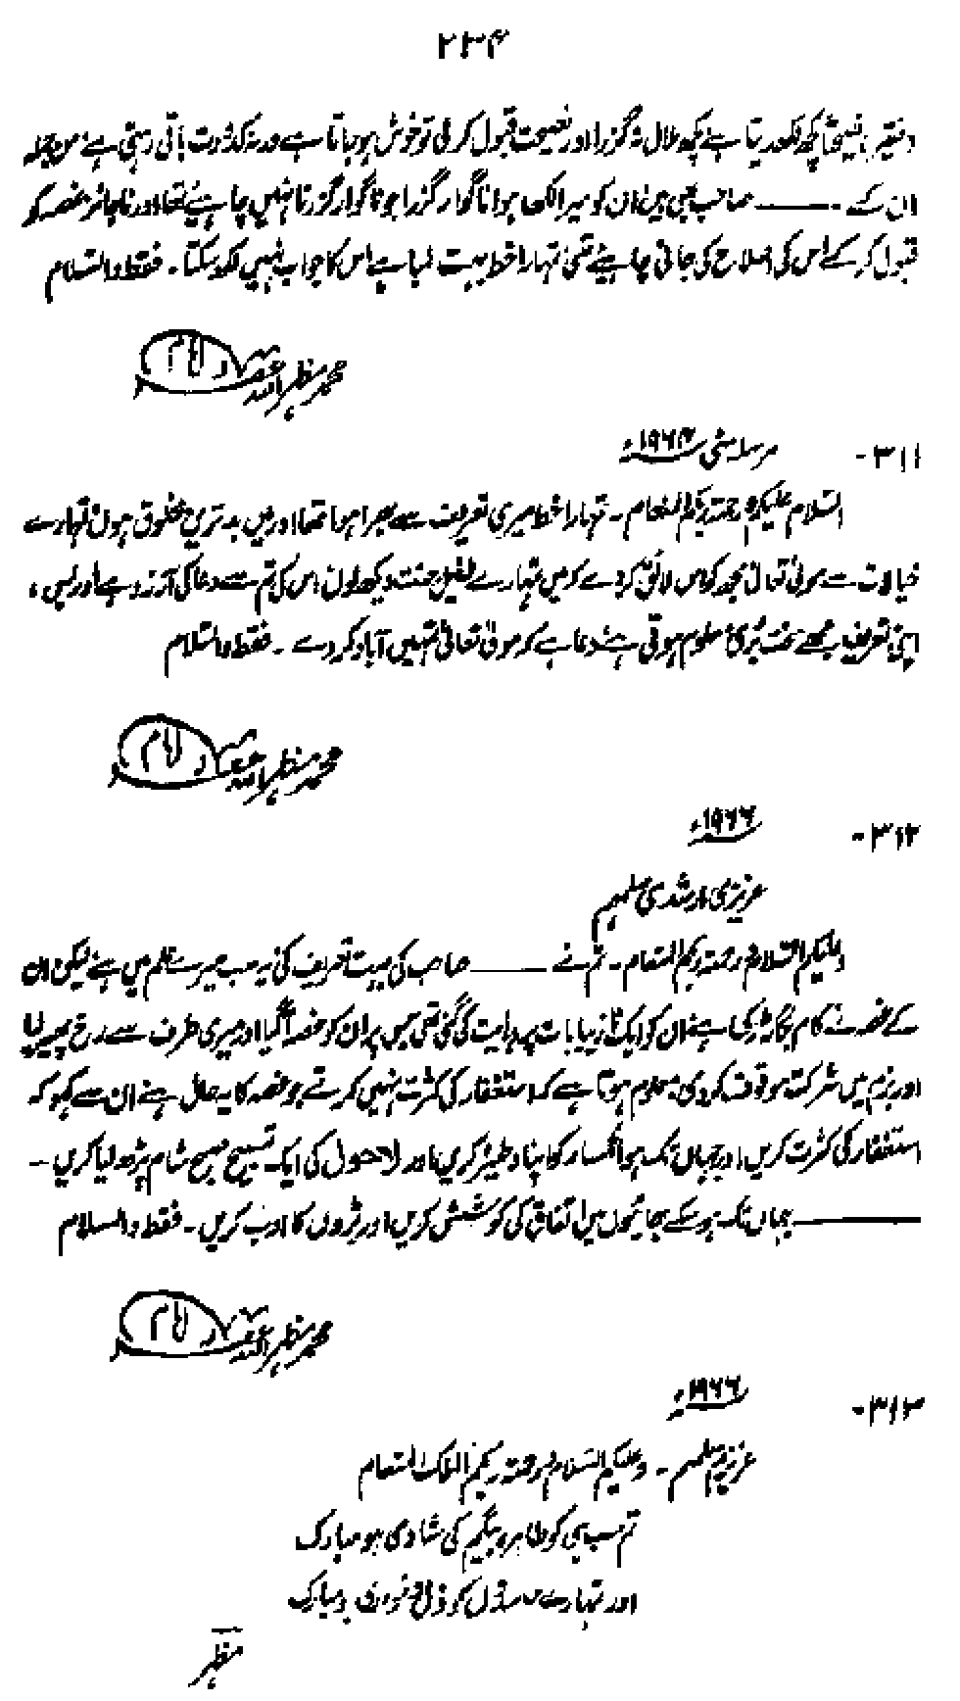 ۲۳۴
فقیر نصیحتاً کچھ لکھ دیتا ہے کچھ ملال نہ گزرا اور نصیحت قبول کرلی تو خوش ہو جاتا ہے ورنہ کدورت باقی رہتی ہے من جملہ
ان کے ـــــ صاحب بھی ہیں ان کو میرا لکھا ہوا ناگوار گزرا جو ناگوار گزرنا نہیں چاہیئے تھا اور ناجائز غصہ کو
قبول کر کے اس کی اصلاح کی جانی چاہیئے تھی تمہارا خط بہت لمبا ہے اس کا جواب نہیں لکھ سکتا ۔ فقط والسلام
محمد مظہر اللہ غفرلہ امام
۳۱۱-
مرسلہ مئی ۱۹۶۴ء
السلام علیکم ورحمۃ ربکم المنعام ۔ تمہارا خط میری تعریف سے بھرا ہوا تھا اور میں بدترین مخلوق ہوں تمہارے
خیالات سے مولیٰ تعالیٰ مجھ کو اس لائق کردے کہ میں تمہارے طفیل جنت دیکھ لوں، اس کی تم سے دعا کی آرزو ہے اور بس ،
اپنی تعریف مجھے سخت بُری معلوم ہوتی ہے دعا ہے کہ مولیٰ تعالیٰ تمہیں آباد کردے ۔ فقط والسلام
محمد مظہر اللہ غفرلہ امام
۳۱۲-
۱۹۶۶ء
عزیزی ارشدی سلمہم
وعلیکم السلام ورحمۃ ربکم المنعام ۔ تم نے ـــــ صاحب کی بہت تعریف کی یہ سب میرے علم میں ہے لیکن ان
کے غصہ نے کام بگاڑ رکھا ہے ان کو ایک نازیبا بات پر ہدایت کی گئی تھی جس پر ان کو غصہ آگیا اور میری طرف سے رخ پھیر لیا
اور بزم میں شرکت موقوف کردی، معلوم ہوتا ہے کہ استغفار کی کثرت نہیں کرتے جو غصہ کا یہ حال ہے ان سے کہو کہ
استغفار کی کثرت کریں اور جہاں تک ہو انکسار کو اپنا وطیرہ کریں اور لاحول کی ایک تسبیح صبح شام پڑھ لیا کریں ـ
ـــــ جہاں تک ہو سکے بھائیوں میں اتفاق کی کوشش کریں اور بڑوں کا ادب کریں ۔ فقط والسلام
محمد مظہر اللہ غفرلہ امام
۳۱۳-
۱۹۶۶ء
عزیزم سلمہم ۔ وعلیکم السلام ورحمۃ ربکم الملک المنعام
تم سب ہی کو طاہرہ بیگم کی شادی ہو مبارک
اور تمہارے کو مبارک
مظہر